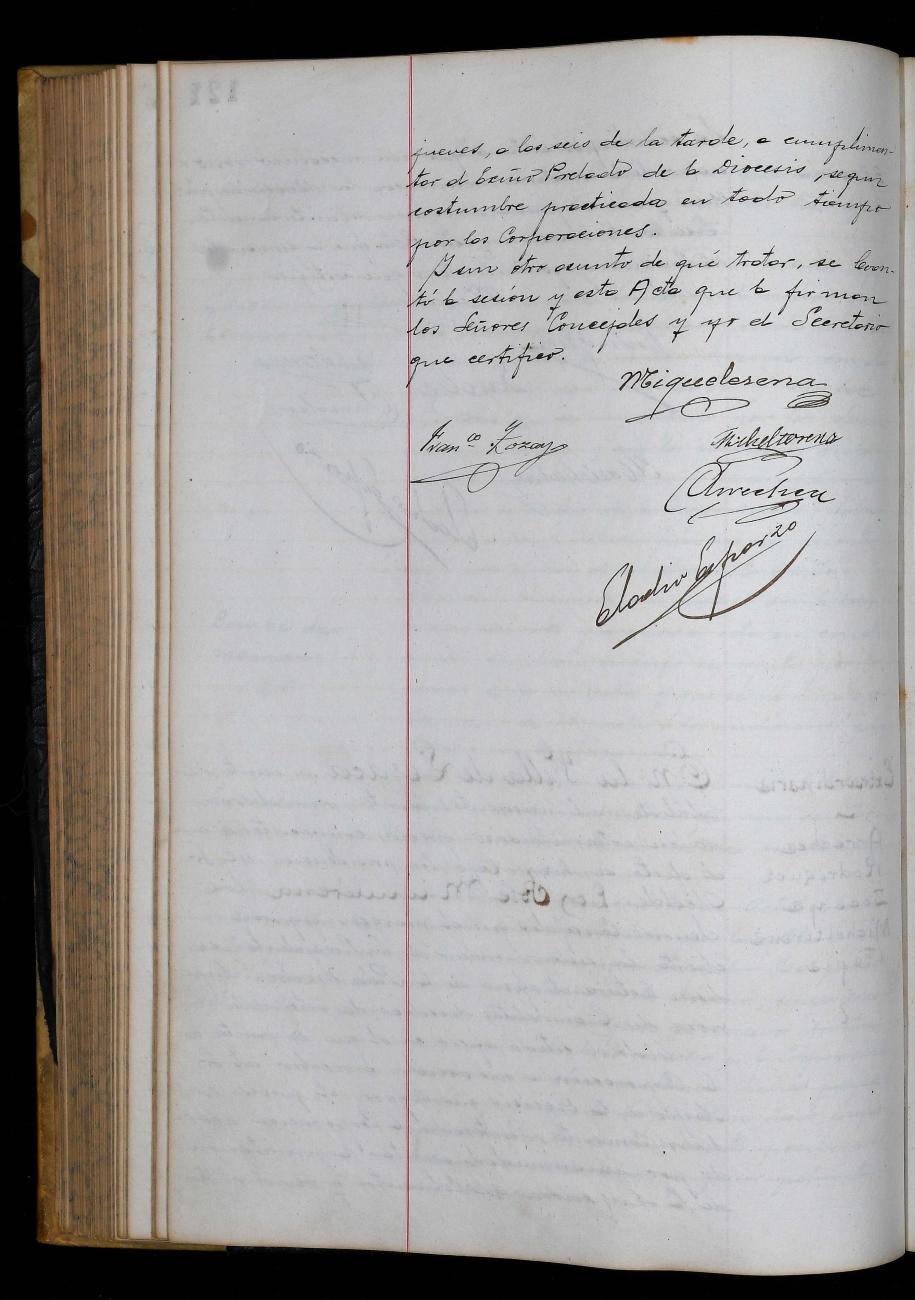 jueves, a las seis de la tarde, a cumplimen-
tar al Excmo Prelado de la Diocesis, segun
costumbre practicada en todo tiempo
por las Corporaciones.
Y sin otro asunto de qué tratar, se levan-
tó la sesión y esta Acta que la firman
los Señores Concejales y yo el Secretario
que certifico.
Miquelerena
Franco Zozay
Micheltorena
Arrechea
Eladio Esparza